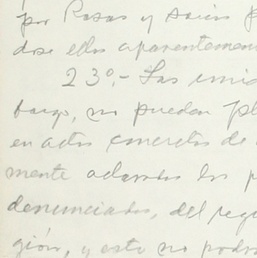 por Rosas y socios p
dose ellos aparentemen
23º.- Las
bargo, no puedan pl
en actos concretos de
mente aclarados los p
denunciados, del reg
gión, y esto no podr